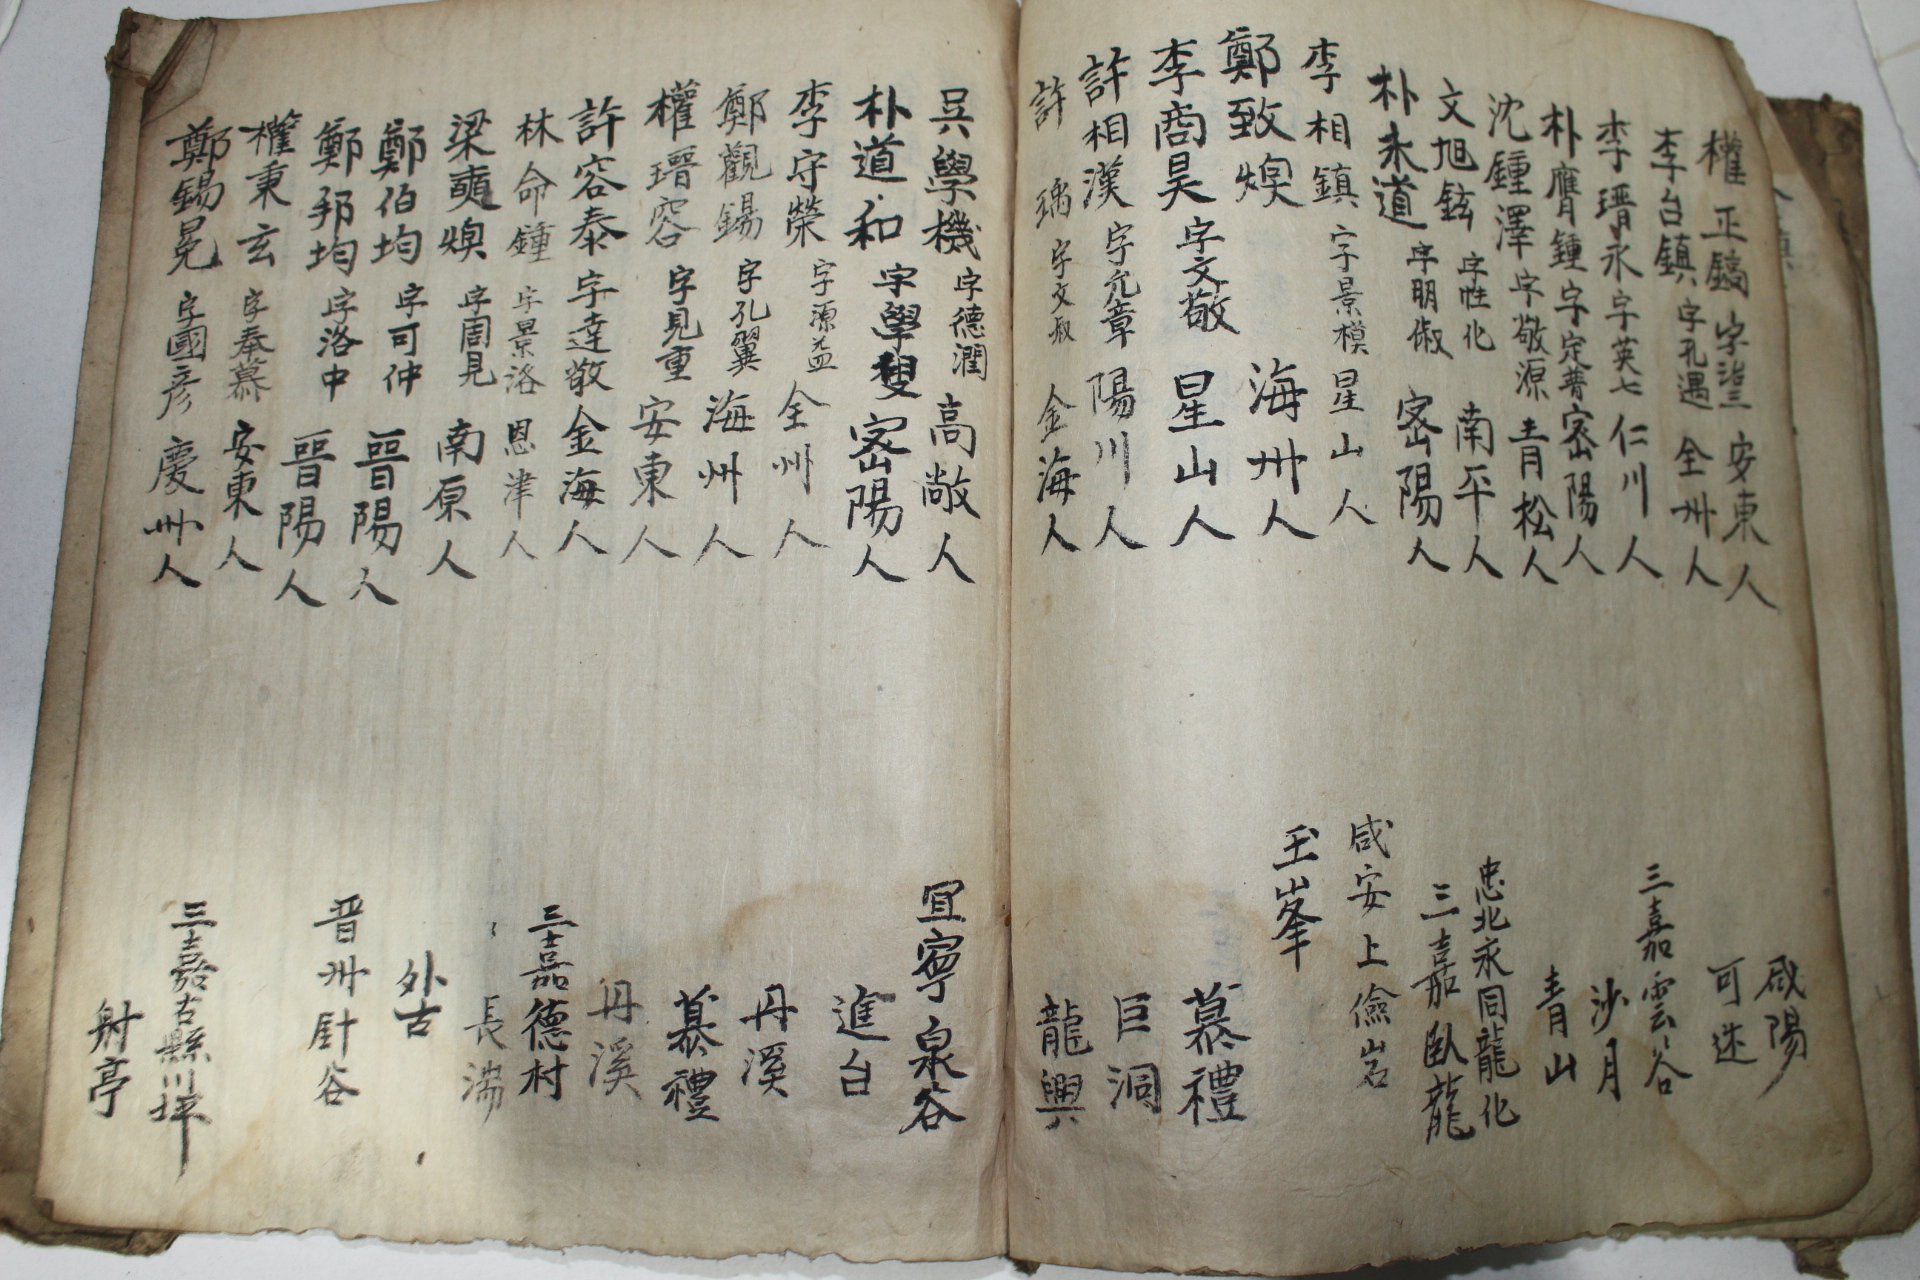 權正鎬 字 安東人 咸陽
李台鎮 字孔遇 全州人 可述
李瑨永 字英七 仁川人 三嘉雲谷
朴膺鍾 字定普 密陽人 沙月
沈鍾澤 字敬源 青松人 青山
文旭鉉 字性化 南平人 忠北永同龍化
朴永道 字明俶 密陽人 三嘉臥龍
李相鎮 字景模 星山人 咸安上儉岩
鄭致煥 海州人 玉峯
李商昊 字文敬 星山人 慕禮
許相漢 字允章 陽川人 巨洞
許瑀 字文叔 金海人 龍興
吳學機 字德潤 高敞人 宜寧泉谷
朴道和 字學叟 密陽人 進台
李守榮 字源益 全州人
鄭觀錫 字孔翼 海州人 丹溪
權瑨容 字見重 安東人 慕禮
許容泰 字達敬 金海人 丹溪
林命鍾 字景洛 恩津人 三嘉德村
梁奭煥 字周見 南原人 長湍
鄭伯均 字可仲 晉陽人 外古
鄭邦均 字洛中 晉陽人 晋州針谷
權秉玄 字奉慕 安東人 三嘉古縣川坪
鄭錫冕 字國彦 慶州人 射亭